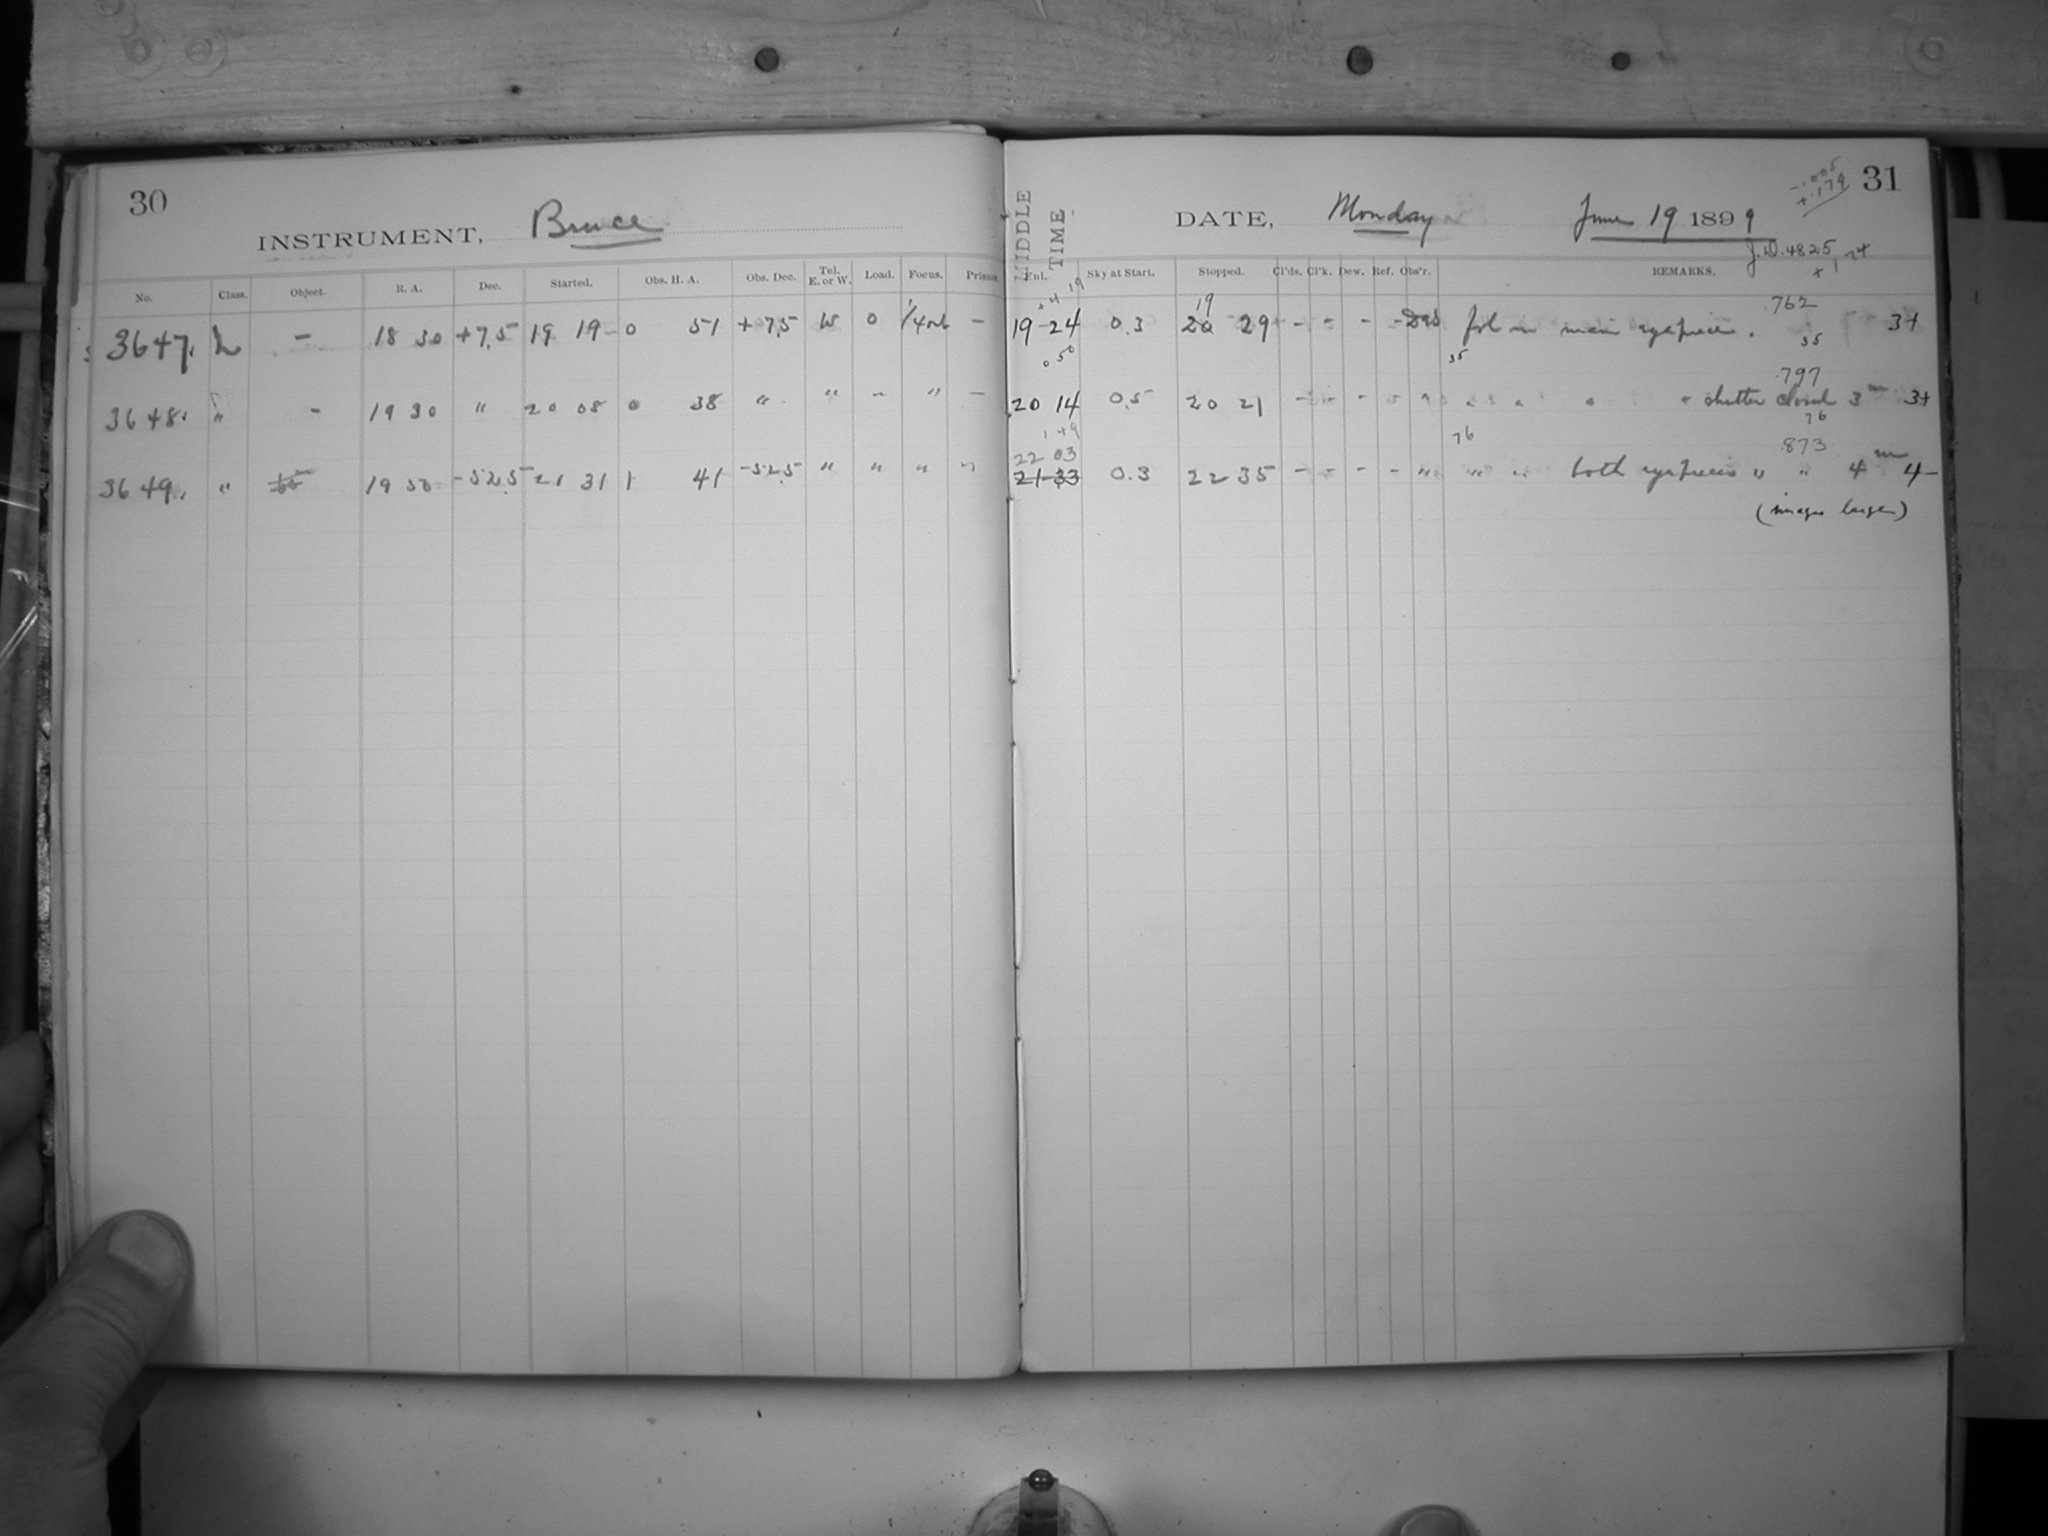 30
INSTRUMENT, Bruce
No. Class. Object. R. A. Dec. Started. Obs. H. A. Obs. Dec. Tel. E. or W. Load. Focus. Prism
3647. L - 18 30 +7.5 19 19 0 51 +7.5 W 0 -
3648. " - 19 30 " 20 08 0 38 " " " " -
3649. " 19 50 -52.5 21 31 1 41 -52.5 " " " "
31
-.005
+.179
MIDDLE TIME
DATE, Monday June 19 1899
J.D. 4825
Enl. Sky at Start. Stopped. Cl'ds. Cl'k. Dew. Ref. Obs'r. REMARKS.
+4 19
19 .762
19-24 0.3 20 29 - - - - main eyepiece. 3+
0 50 35 35
.797
20 14 0.5 20 21 - - - " " " " " shutter closed 3m 3+
1 49 76 76
22 03 .873
21-33 0.3 22 35 - - - - " " " both eyepieces " " 4m 4-
(images large)